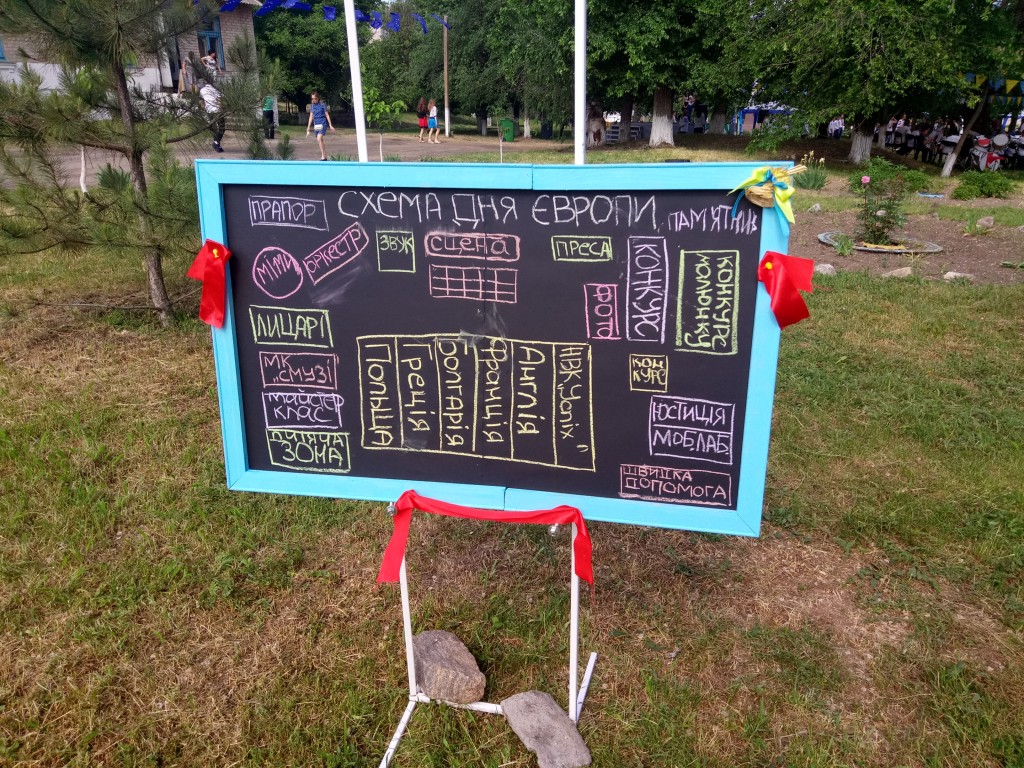 СХЕМА ДНЯ ЄВРОПИ
ПРАПОР
ПАМ'ЯТНИК
МІМИ
ОРКЕСТР
ЗВУК
СЦЕНА
ПРЕСА
КОНКУРС
КОНКУРС
МАЛЮНКУ
ФОТО
ЛИЦАРІ
МК
"СМУЗІ
МАЙСТЕР
КЛАС
ДИТЯЧА
ЗОНА
Польща
Греція
Болгарія
Франція
Англія
НВК
КОН
КУРС
ЮСТИЦІЯ
МОБ.ЛАБ.
ШВИДКА
ДОПОМОГА